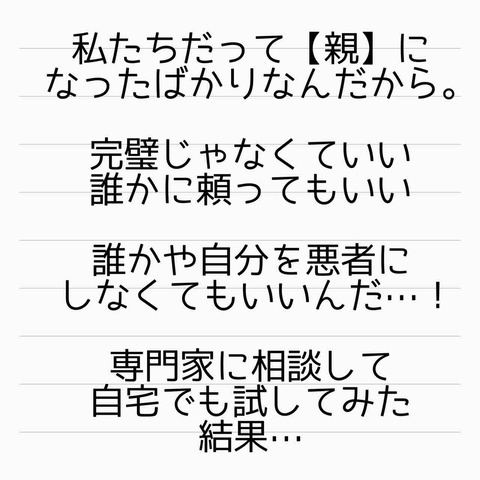 私たちだって【親】に
なったばかりなんだから。
完璧じゃなくていい
誰かに頼ってもいい
誰かや自分を悪者に
しなくてもいいんだ…！
専門家に相談して
自宅でも試してみた
結果…